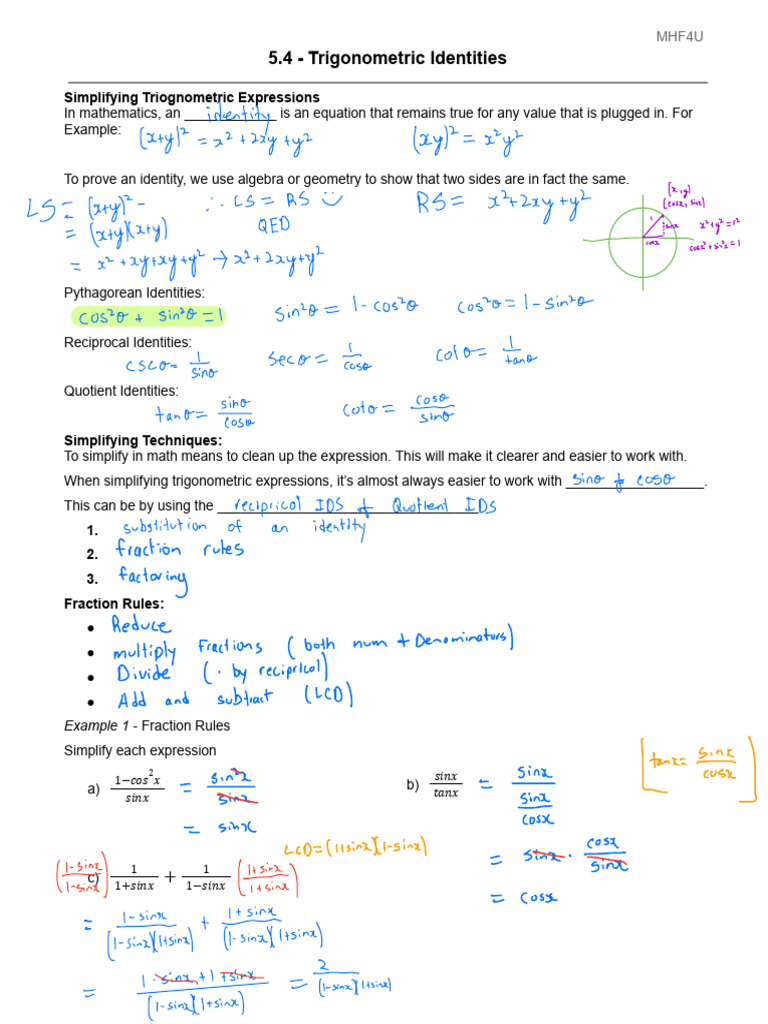 MHF4U
5.4 - Trigonometric Identities
Simplifying Triognometric Expressions
In mathematics, an identity is an equation that remains true for any value that is plugged in. For
Example: (x+y)² = x² + 2xy + y² (xy)² = x²y²
To prove an identity, we use algebra or geometry to show that two sides are in fact the same.
LS = (x+y)² ∴ LS = RS RS = x²+2xy+y²
= (x+y)(x+y) QED
= x² + xy + xy + y² → x² + 2xy + y²
(x, y)
(cosx, sinx)
1 sinx x² + y² = r²
cosx cosx² + sin²x = 1
Pythagorean Identities:
cos²θ + sin²θ = 1 sin²θ = 1 - cos²θ cos²θ = 1 - sin²θ
Reciprocal Identities:
cscθ = 1/sinθ secθ = 1/cosθ cotθ = 1/tanθ
Quotient Identities:
tanθ = sinθ/cosθ cotθ = cosθ/sinθ
Simplifying Techniques:
To simplify in math means to clean up the expression. This will make it clearer and easier to work with.
When simplifying trigonometric expressions, it's almost always easier to work with sinθ & cosθ.
This can be by using the reciprical IDS & Quotient IDS
1. substitution of an identity
2. fraction rules
3. factoring
Fraction Rules:
• Reduce
• multiply Fractions (both num + Denominators)
• Divide (· by reciprical)
• Add and subtract (LCD)
Example 1 - Fraction Rules
Simplify each expression
a) (1−cos²x)/sinx = sin²x/sinx
= sinx
b) sinx/tanx = sinx/(sinx/cosx)
= sinx · cosx/sinx
= cosx
[tanx = sinx/cosx]
LCD = (1+sinx)(1-sinx)
c) ((1-sinx)/(1-sinx)) 1/(1+sinx) + 1/(1−sinx) ((1+sinx)/(1+sinx))
= (1-sinx)/((1-sinx)(1+sinx)) + (1+sinx)/((1-sinx)(1+sinx))
= (1-sinx+1+sinx)/((1-sinx)(1+sinx)) = 2/((1-sinx)(1+sinx))